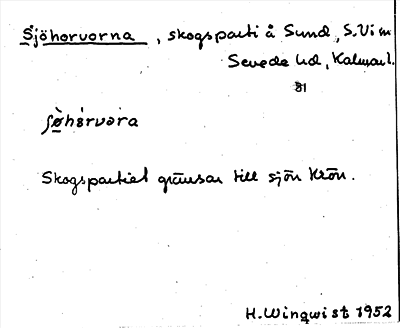 Sjöhorvorna, skogsparti å Sund, S. Vi sn
Sevede hd, Kalmar l.
81
Skogspartiet gränsar till sjön Krön.
H. Winqwist 1952